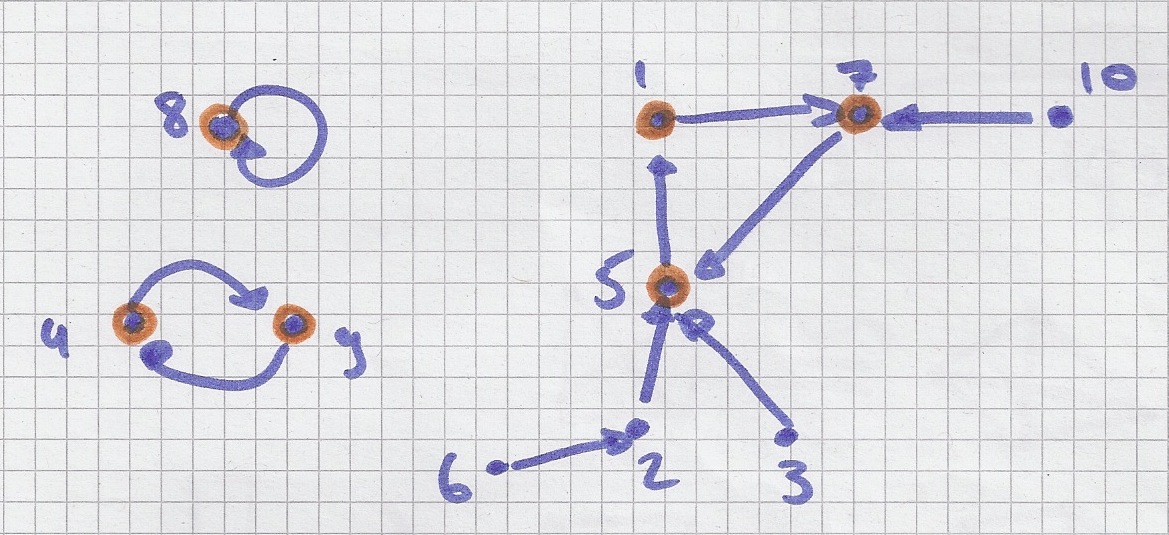 8
1
7
10
5
4
9
6
2
3